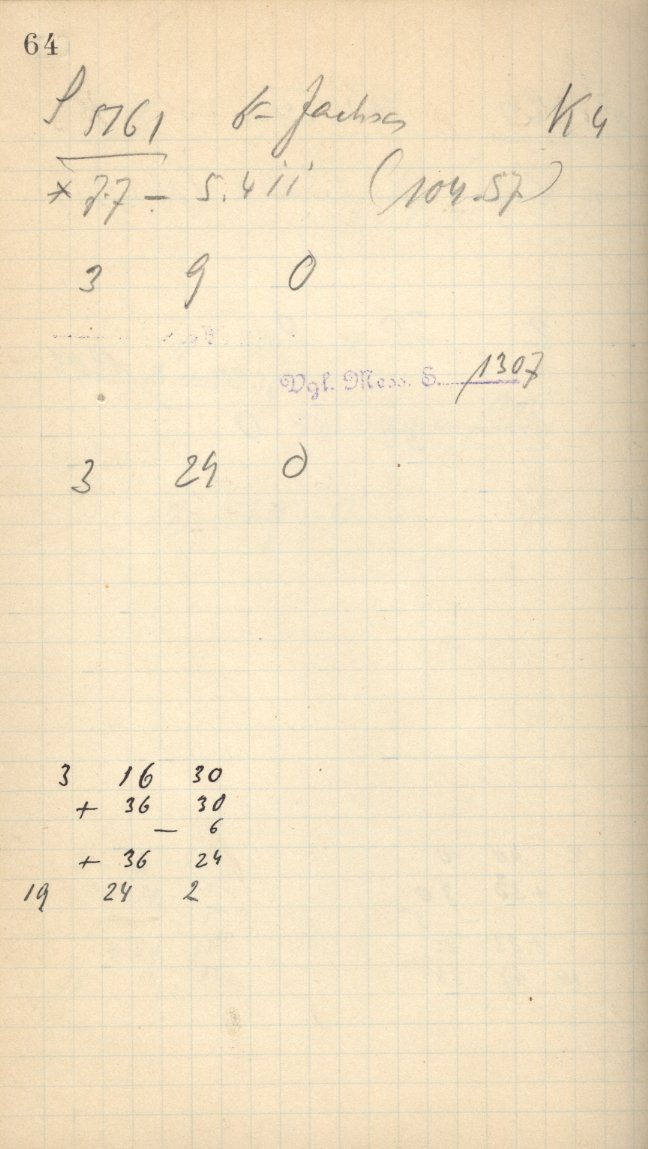 64
P 5161 K4
* 7.7 – 5.4 ii (104.57)
3 9 0
Vgl. Mess. S. 1307
3 24 0
3 16 30
+ 36 30
– 6
+ 36 24
19 24 2